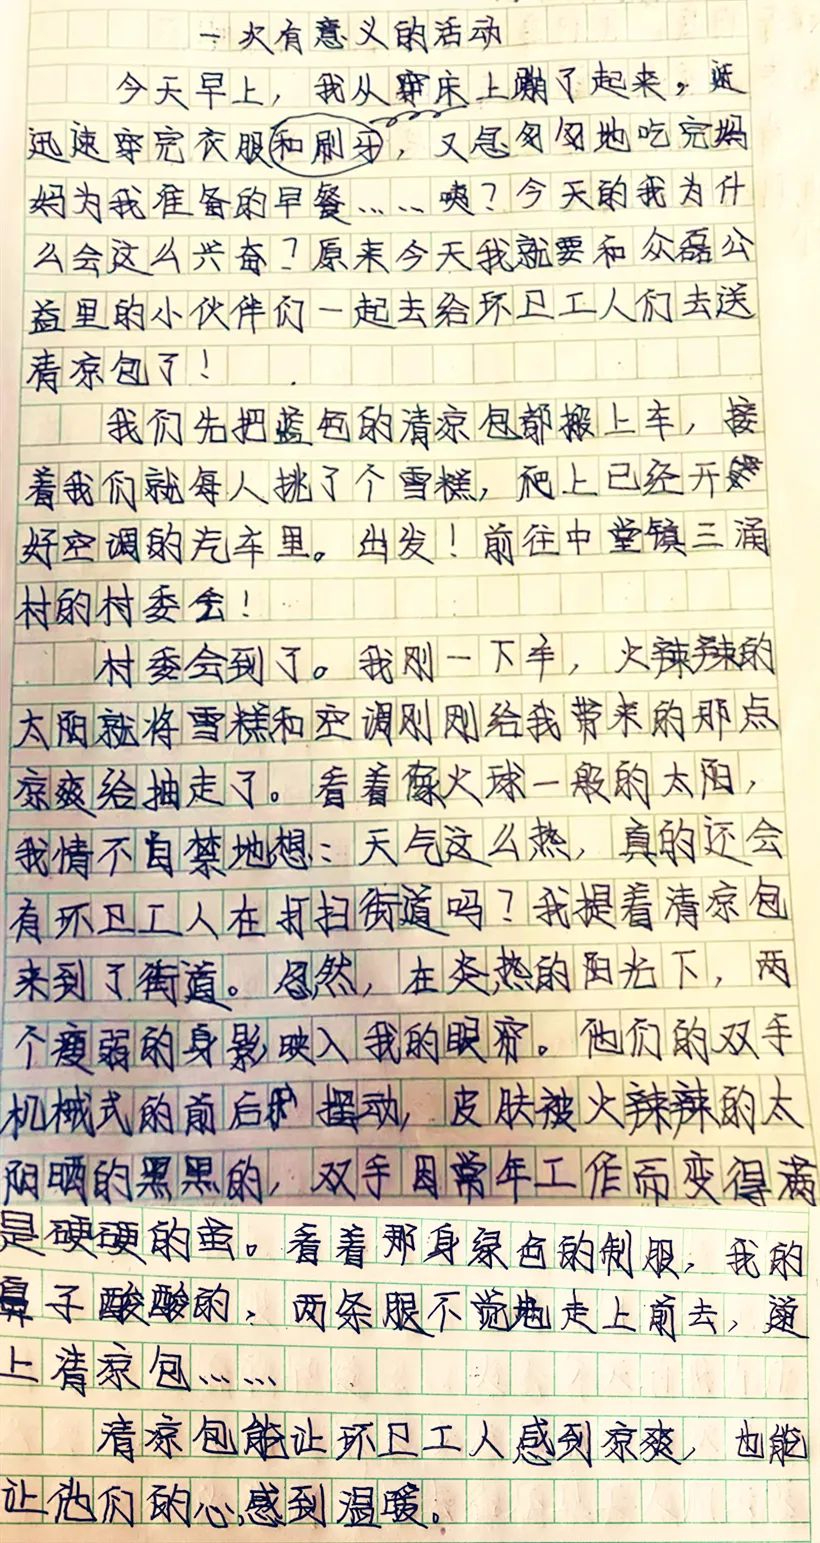 一次有意义的活动
今天早上，我从床上蹦了起来，
迅速穿完衣服和刷牙，又急匆匆地吃完妈
妈为我准备的早餐……咦？今天的我为什
么会这么兴奋？原来今天我就要和众磊公
益里的小伙伴们一起去给环卫工人们去送
清凉包了！
我们先把蓝色的清凉包都搬上车，接
着我们就每人挑了个雪糕，爬上已经开
好空调的汽车里。出发！前往中堂镇三涌
村的村委会！
村委会到了。我刚一下车，火辣辣的
太阳就将雪糕和空调刚刚给我带来的那点
凉爽给抽走了。看着像火球一般的太阳，
我情不自禁地想：天气这么热，真的还会
有环卫工人在打扫街道吗？我提着清凉包
来到了街道。忽然，在炎热的阳光下，两
个瘦弱的身影映入我的眼帘。他们的双手
机械式的前后摆动，皮肤被火辣辣的太
阳晒的黑黑的，双手因常年工作而变得满
是硬硬的茧。看着那身绿色的制服，我的
鼻子酸酸的，两条腿不觉地走上前去，递
上清凉包……
清凉包能让环卫工人感到凉爽，也能
让他们的心感到温暖。